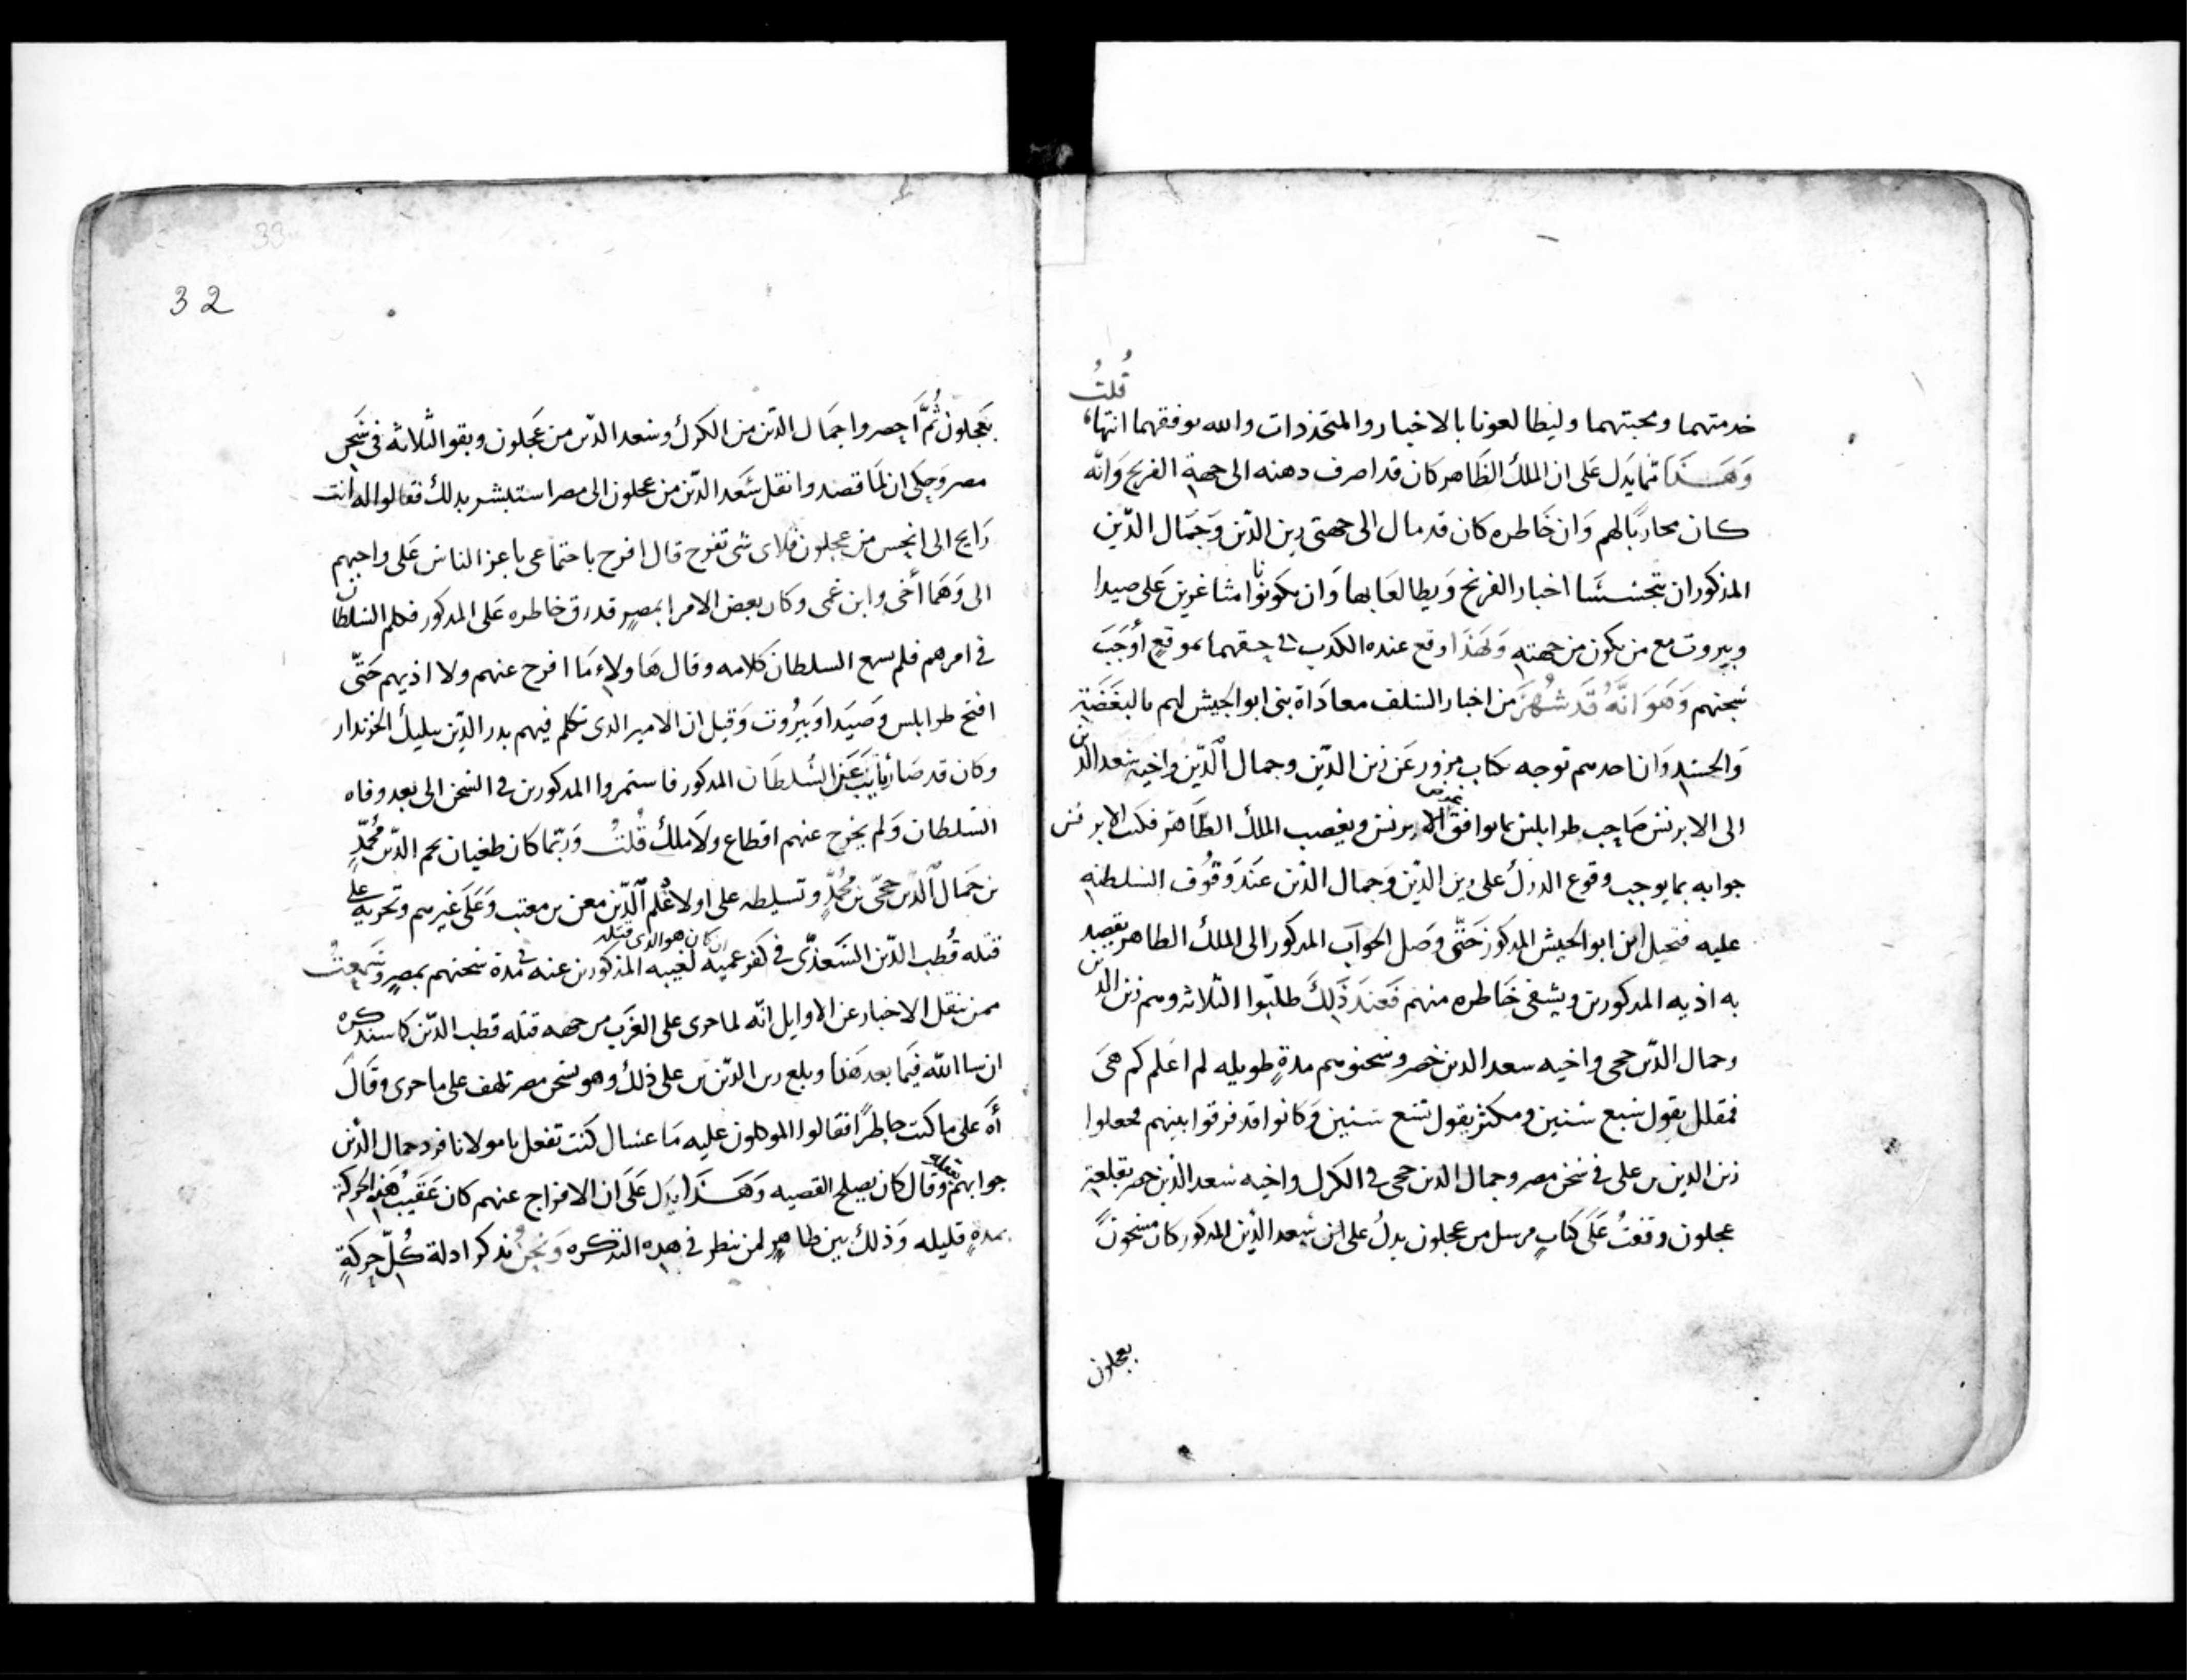 خدمتهما ومحبتهما وليطالعونا بالاخبار والمتجددات والله يوفقهما انتهاء قلت
وهذا مما يدل على ان الملك الظاهر كان قد اصرف دهنه الى جهة الفرنج وانه
كان محاربا لهم وان خاطره كان قد مال الى جهتي زين الدين وجمال الدين
المذكوران بتجسسا اخبار الفرنج ويطالعا بها وان يكونوا مثاغرين على صيدا
وبيروت مع من يكون من جهته ولهذا وقع عنده الكذب في حقهما بموقع أوجب
سجنهم وهو انه قد شهر من اخبار السلف معاداة بني ابو الجيش لهم بالبغضة
والحسد وان احدهم توجه بكتاب مزور عن زين الدين وجمال الدين واخيه سعد الدين
الى الابرنس صاحب طرابلس بما يوافق الابرنس ويغضب الملك الظاهر فكتب الابرنس
جوابه بما يوجب وقوع الدرك على زين الدين وجمال الدين عند وقوف السلطنه
عليه فتحيل ابن ابو الجيش المذكور حتى وصل الجواب المذكور الى الملك الظاهر يقصد
به اذيه المذكورين ويشفي خاطره منهم فعند ذلك طلبوا الثلاثه وهم زين الدين
وجمال الدين حجى واخيه سعد الدين خضر وسجنوهم مدة طويله لم اعلم كم هى
فمقلل يقول سبع سنين ومكثر يقول تسع سنين وكانوا قد فرقوا بينهم فجعلوا
زين الدين بن على في سجن مصر وجمال الدين حجى في الكرك واخيه سعد الدين خضر بقلعة
عجلون وقفت على كتاب مرسل من عجلون يدل على ان سعد الدين المذكور كان مسجونا
بعجلون
32
بعجلون ثم احضروا جمال الدين من الكرك وسعد الدين من عجلون وبقوا الثلاثه في سجن
مصر وحكى ان لما قصدوا نقل سعد الدين من عجلون الى مصر استبشر بدلك فقالوا له انت
رايح الى انحس من عجلون فلاى شى تفرح قال افرح باجتماعى باعز الناس على واحبهم
الى وهما أخى وابن عمى وكان بعض الامرا بمصر قد رق خاطره على المدكور فكلم السلطان
في امرهم فلم يسمع السلطان كلامه وقال هاولاء ما افرج عنهم ولا اذيهم حتى
افتح طرابلس وصيدا وبيروت وقيل ان الامير الدى تكلم فيهم بدر الدين بيليك الخزندار
وكان قد صار نايب عن السلطان المدكور فاستمروا المدكورين في السجن الى بعد وفاه
السلطان ولم يخرج عنهم اقطاع ولا ملك قلت وربما كان طغيان نجم الدين محمد
بن جمال الدين حجى بن محمد وتسليطه على اولاد علم الدين معن بن معتب وعلى غيرهم وتجريه على
قتله قطب الدين السعدى في كفر عميه ان كان هو الدى قتله لغيبه المذكورين عنه في مدة سجنهم بمصر وسمعت
ممن ينقل الاخبار عن الاوايل انه لما جرى على الغرب من جهه قتله قطب الدين كما سنذكره
ان شا الله فيما بعد هذا وبلغ زين الدين بن على ذلك وهو بسجن مصر تلهف على ما جرى وقال
أه على ما كنت حاطرا فقالوا الموكلون عليه ما عسال كنت تفعل يا مولانا فرد جمال الدين
جوابهم وقال كان يصلح القصيه وهذا يدل على ان الافراج عنهم كان عقيب هذه الحركة
بمدة قليله وذلك بين ظاهر لمن ينظر في هده التدكره ونحن ندكر ادلة كل حركة